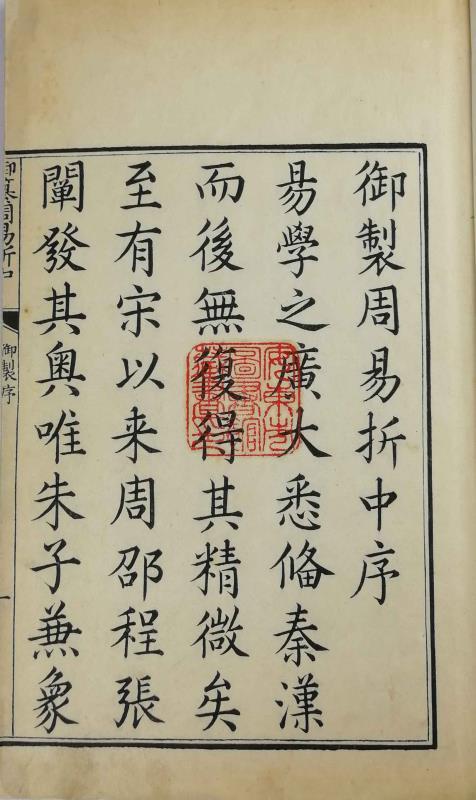 御製周易折中序
易學之廣大悉備秦漢
而後無復得其精微矣
至有宋以来周邵程張
闡發其奥唯朱子兼象
御纂周易折中
御製序
一